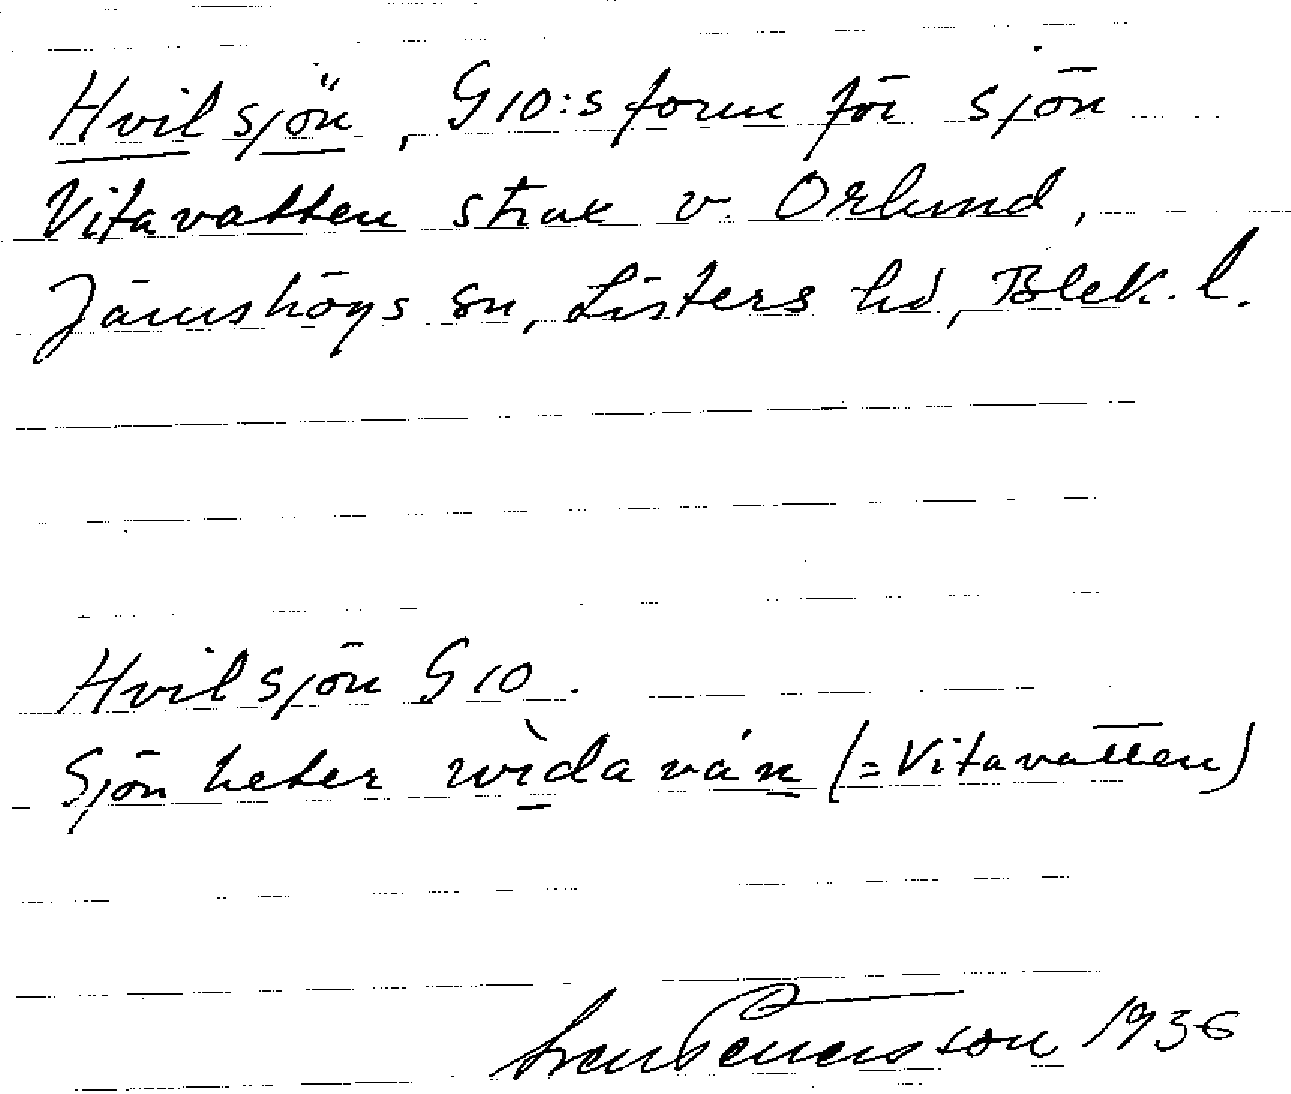 Hvilsjön, G10:s form för sjön
Vitavatten strax v. Orlund,
Jämshögs sn, Listers hd, Blek. l.
Hvilsjön G10.
Sjön heter wìdaván (= Vitavatten)
1936